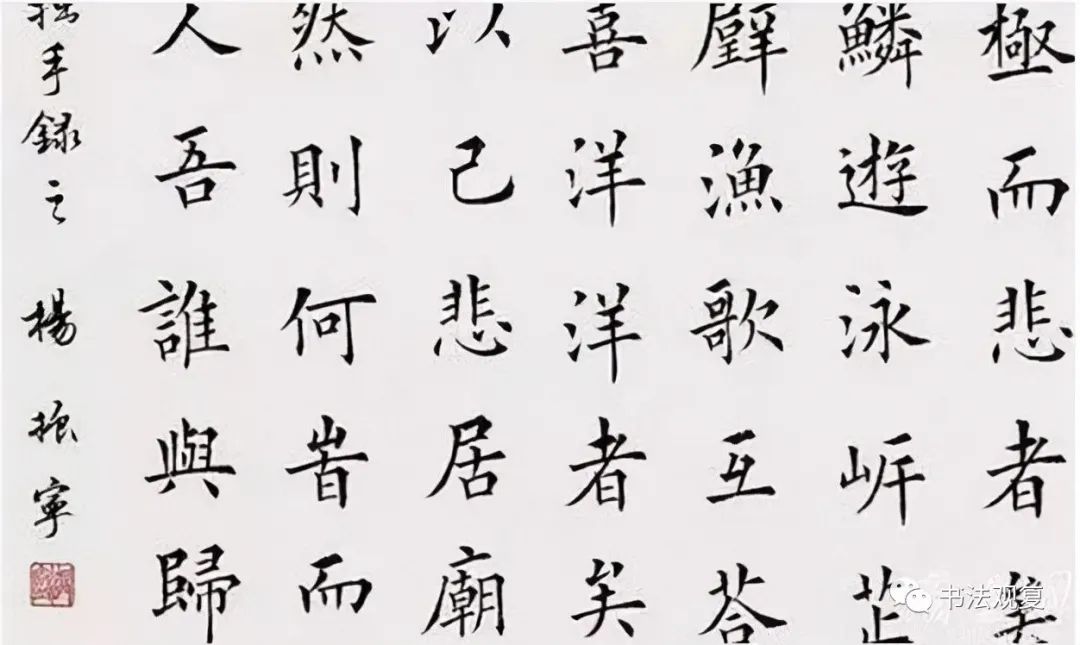 極而悲者矣
鱗遊泳岍芷
璧漁歌互荅
喜洋洋者矣
以己悲居廟
然則何旹而
人吾誰與歸
拙手録之 楊振寧
书法观复